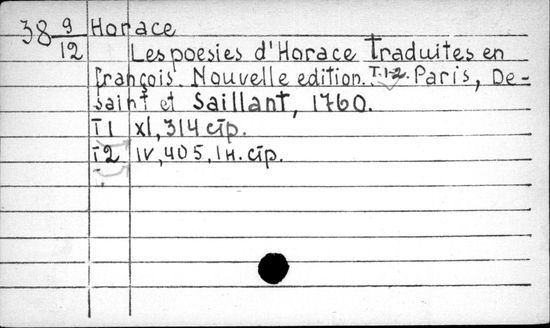 38 9/12 Horace
Les poesies d'Horace Traduites en
français. Nouvelle edition. T.1-2. Paris, De-
saint et Saillant, 1760.
T1 XI, 314 cтр.
T2 IV, 405, 1н. cтр.